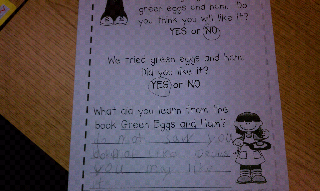 green eggs and ham. Do
you think you will like it?
YES or NO
We tried green eggs and ham.
Did you like it?
YES or NO
What did you learn from the
book Green Eggs and Ham?
you
you